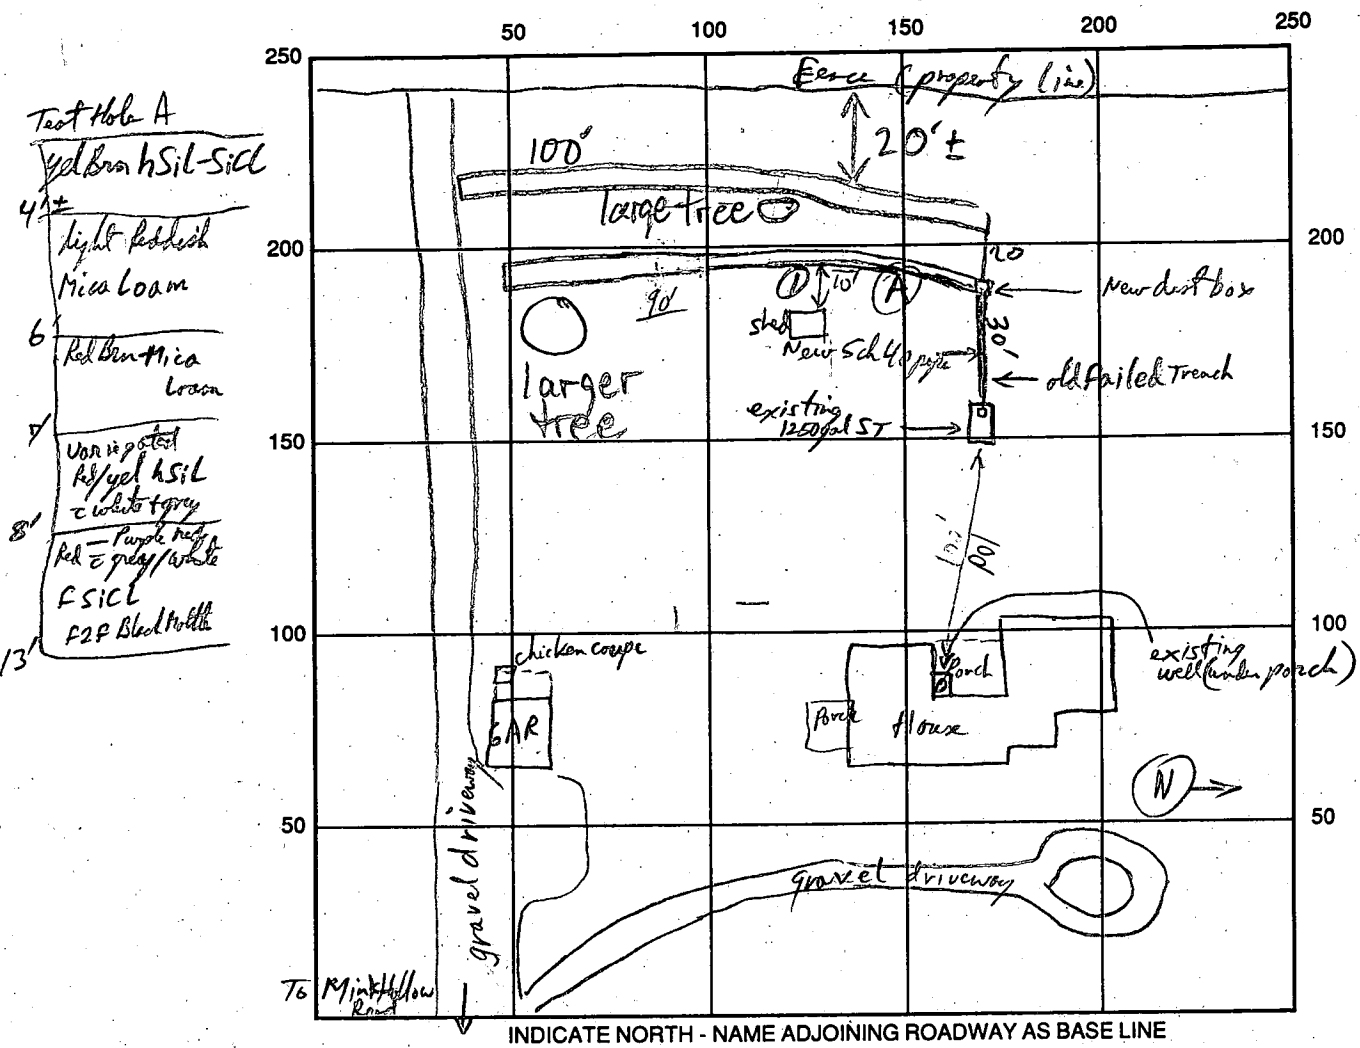 50 100 150 200 250
250
Fence (property line)
Test Hole A
yel Brn hSiL-SiCL
4'±
Light Reddish
Mica Loam
6'
Red Brn Mica
Loam
7'
Variegated
Red/yel hSiL
c white + grey
8'
Red - Purple
Red c grey/white
FSiCL
F2F Black Mottle
13'
100'
20'±
large tree
200
200
20
90'
1
10'
A
New dist box
shed
New Sch 40 pipe
30'
old failed Trench
larger
tree
existing
1250 gal ST
150
150
100'
100
100
chicken coupe
GAR
Porch
Porch
House
existing
well (under porch)
N
50
50
gravel driveway
gravel driveway
To Mink Hollow
Road
INDICATE NORTH - NAME ADJOINING ROADWAY AS BASE LINE